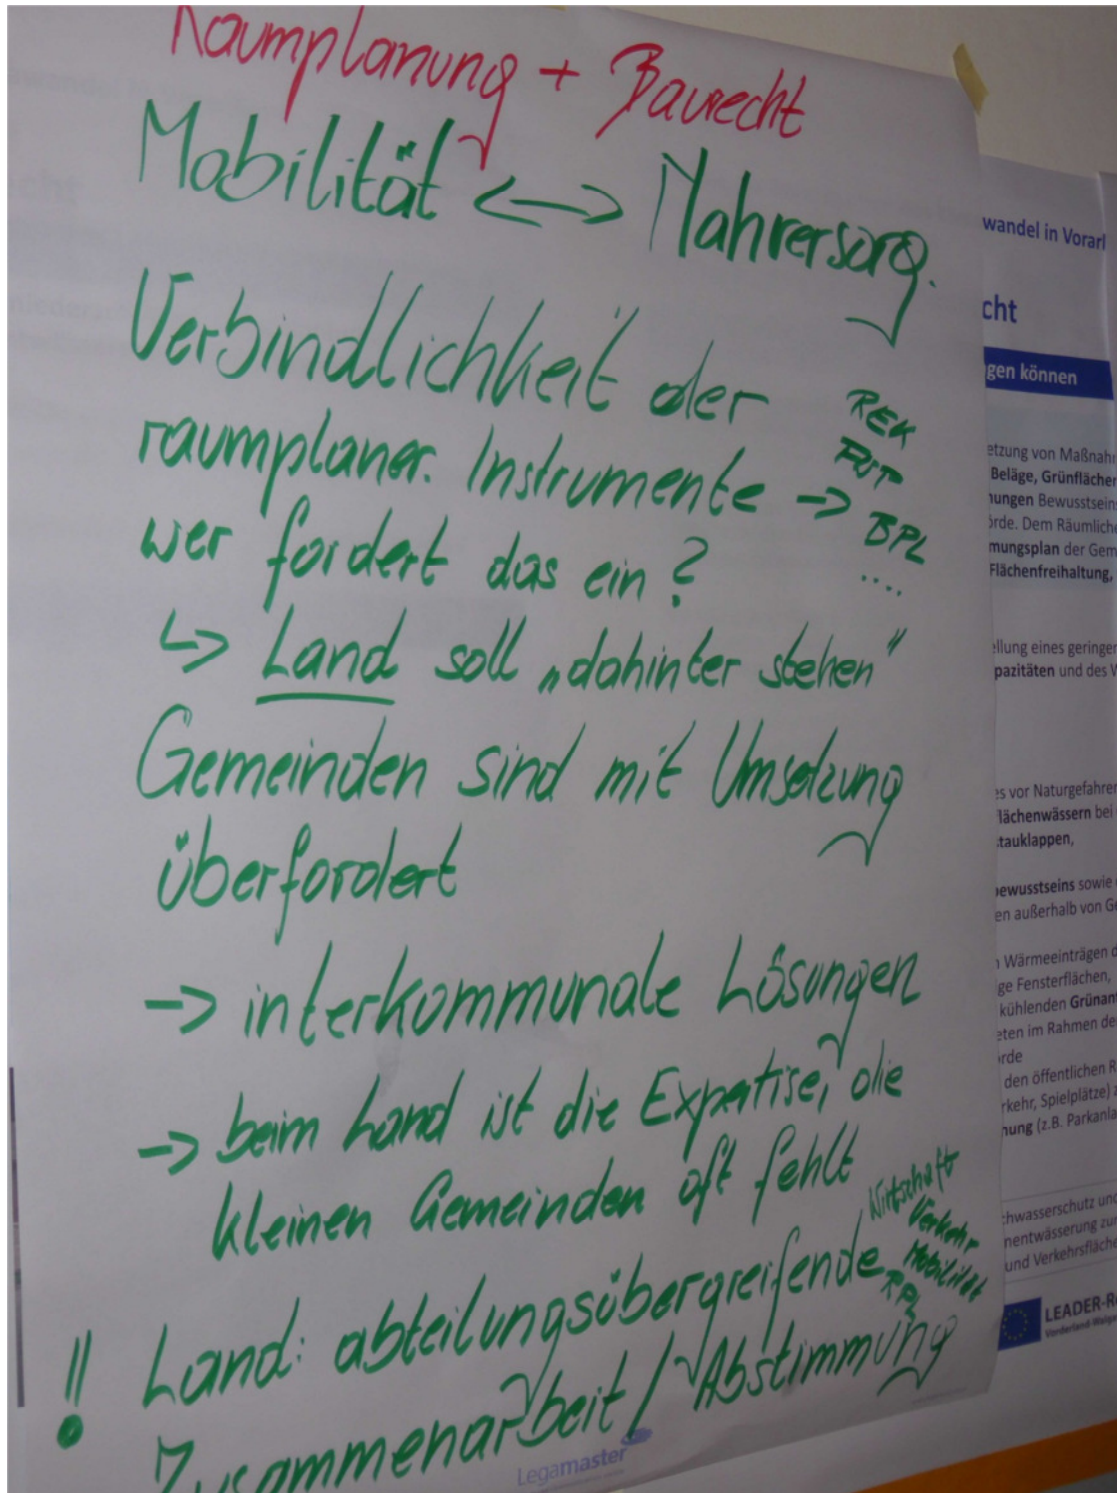 Raumplanung + Baurecht
Mobilität <-> Nahversorg.
Verbindlichkeit der
raumplaner. Instrumente -> REK
BPL
....
wer fordert das ein?
↳ Land soll „dahinter stehen"
Gemeinden sind mit Umsetzung
überfordert
-> interkommunale Lösungen
-> beim Land ist die Expertise, die
kleinen Gemeinden oft fehlt
!! Land: abteilungsübergreifende
Wirtschaft
Verkehr
Mobilität
RPL
Zusammenarbeit / Abstimmung
Legamaster
wandel in Vorarl
cht
gen können
etzung von Maßnahm
Beläge, Grünflächen
nungen Bewusstseins
örde. Dem Räumliche
mungsplan der Gem
Flächenfreihaltung,
ellung eines geringer
pazitäten und des W
es vor Naturgefahren
lächenwässern bei
tauklappen,
bewusstseins sowie
en außerhalb von Ge
n Wärmeeinträgen d
ige Fensterflächen,
kühlenden Grünan
eten im Rahmen de
rde
den öffentlichen R
rkehr, Spielplätze) a
nung (z.B. Parkanla
chwasserschutz und
nentwässerung zur
und Verkehrsfläche
LEADER-R
Vorderland-Walga